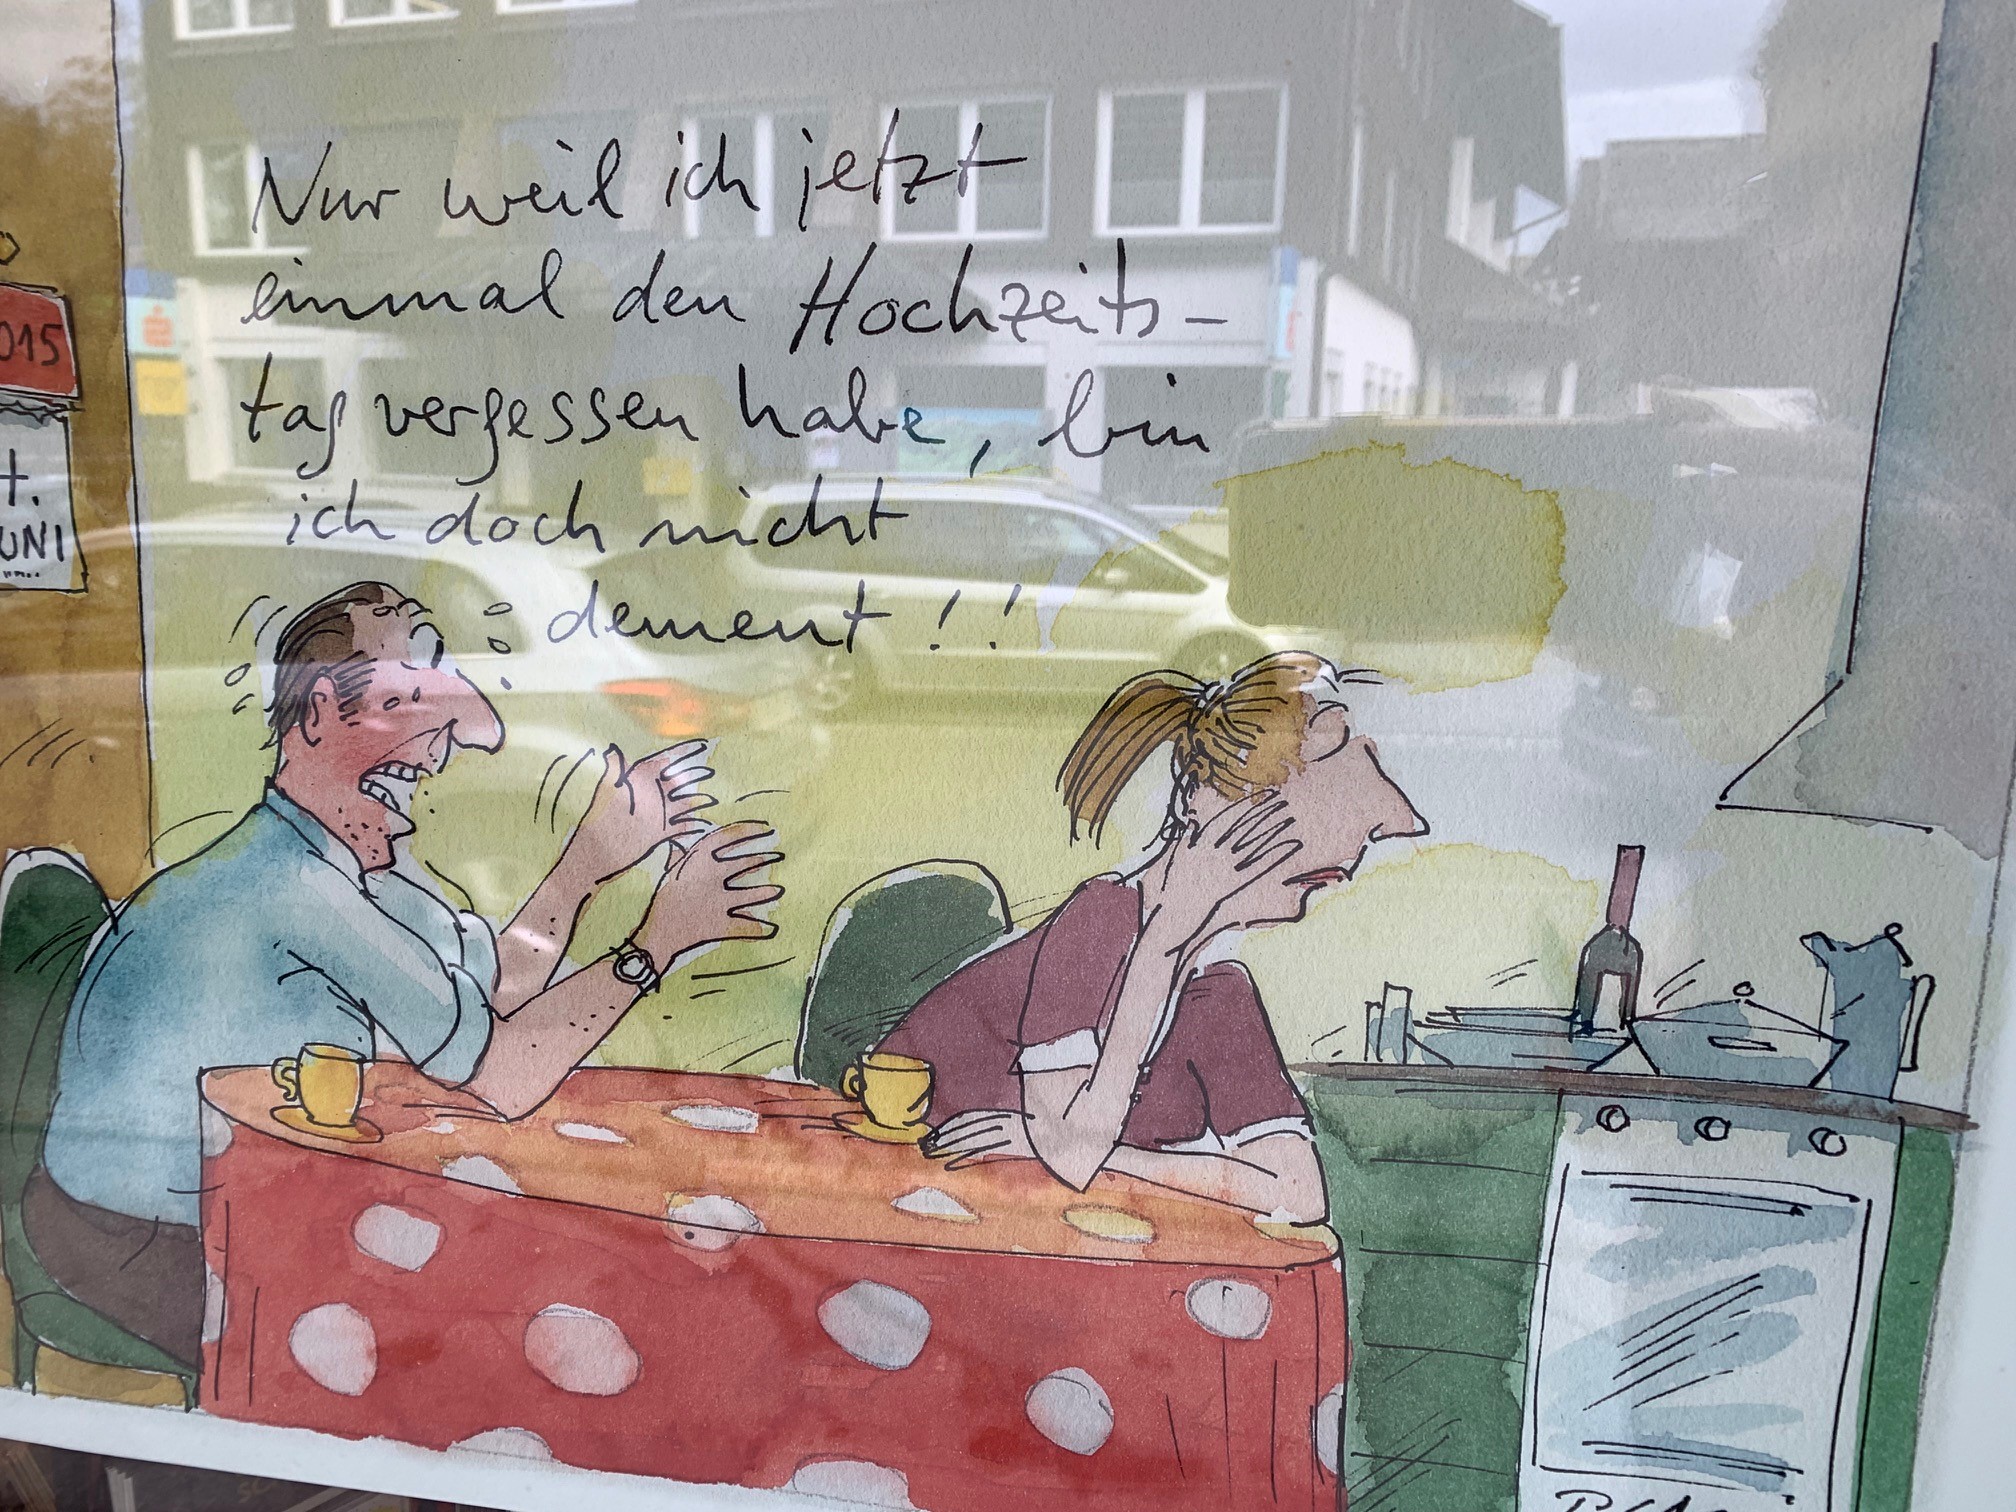 Nur weil ich jetzt
einmal den Hochzeits-
tag vergessen habe, bin
ich doch nicht
dement!!
015
+.
UNI